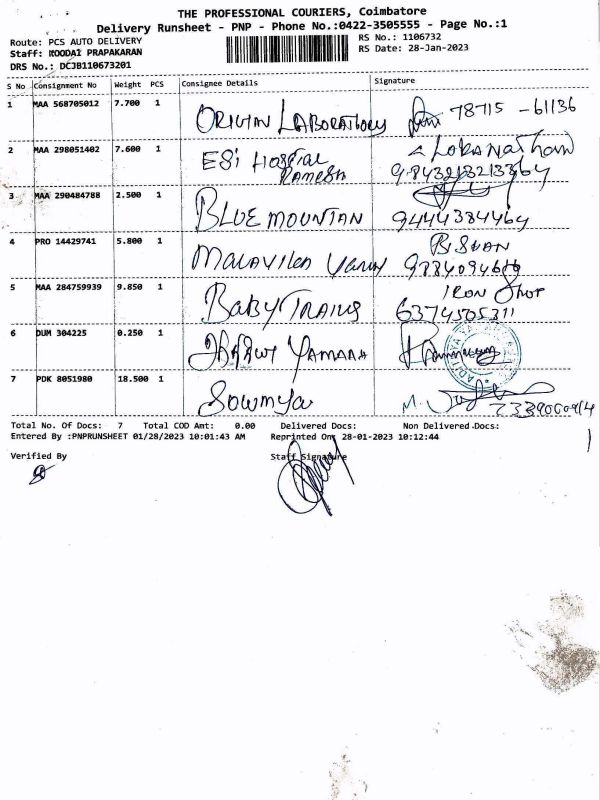 THE PROFESSIONAL COURIERS, Coimbatore
Delivery Runsheet - PNP - Phone No.:0422-3505555 - Page No.:1
Route: PCS AUTO DELIVERY RS No.: 1106732
Staff: KOODAI PRAPAKARAN RS Date: 28-Jan-2023
DRS No.: DCJB110673201
S No Consignment No Weight PCS Consignee Details Signature
1 MAA 568705012 7.700 1 78715 - 61136
LABORATHORY
2 MAA 298051402 7.600 1 ESi Hospital LOKANATHAN
RAMESH
3 MAA 290484788 2.500 1
BLUE MOUNTAN 9444384464
4 PRO 14429741 5.800 1
5 MAA 284759939 9.850 1 IRON Shop
BABY TRAINS 6374505311
6 DUM 304225 0.250 1
7 PDK 8051980 18.500 1
Sowmya
Total No. Of Docs: 7 Total COD Amt: 0.00 Delivered Docs: Non Delivered Docs:
Entered By :PNPRUNSHEET 01/28/2023 10:01:43 AM Reprinted On: 28-01-2023 10:12:44
Verified By Staff Signature